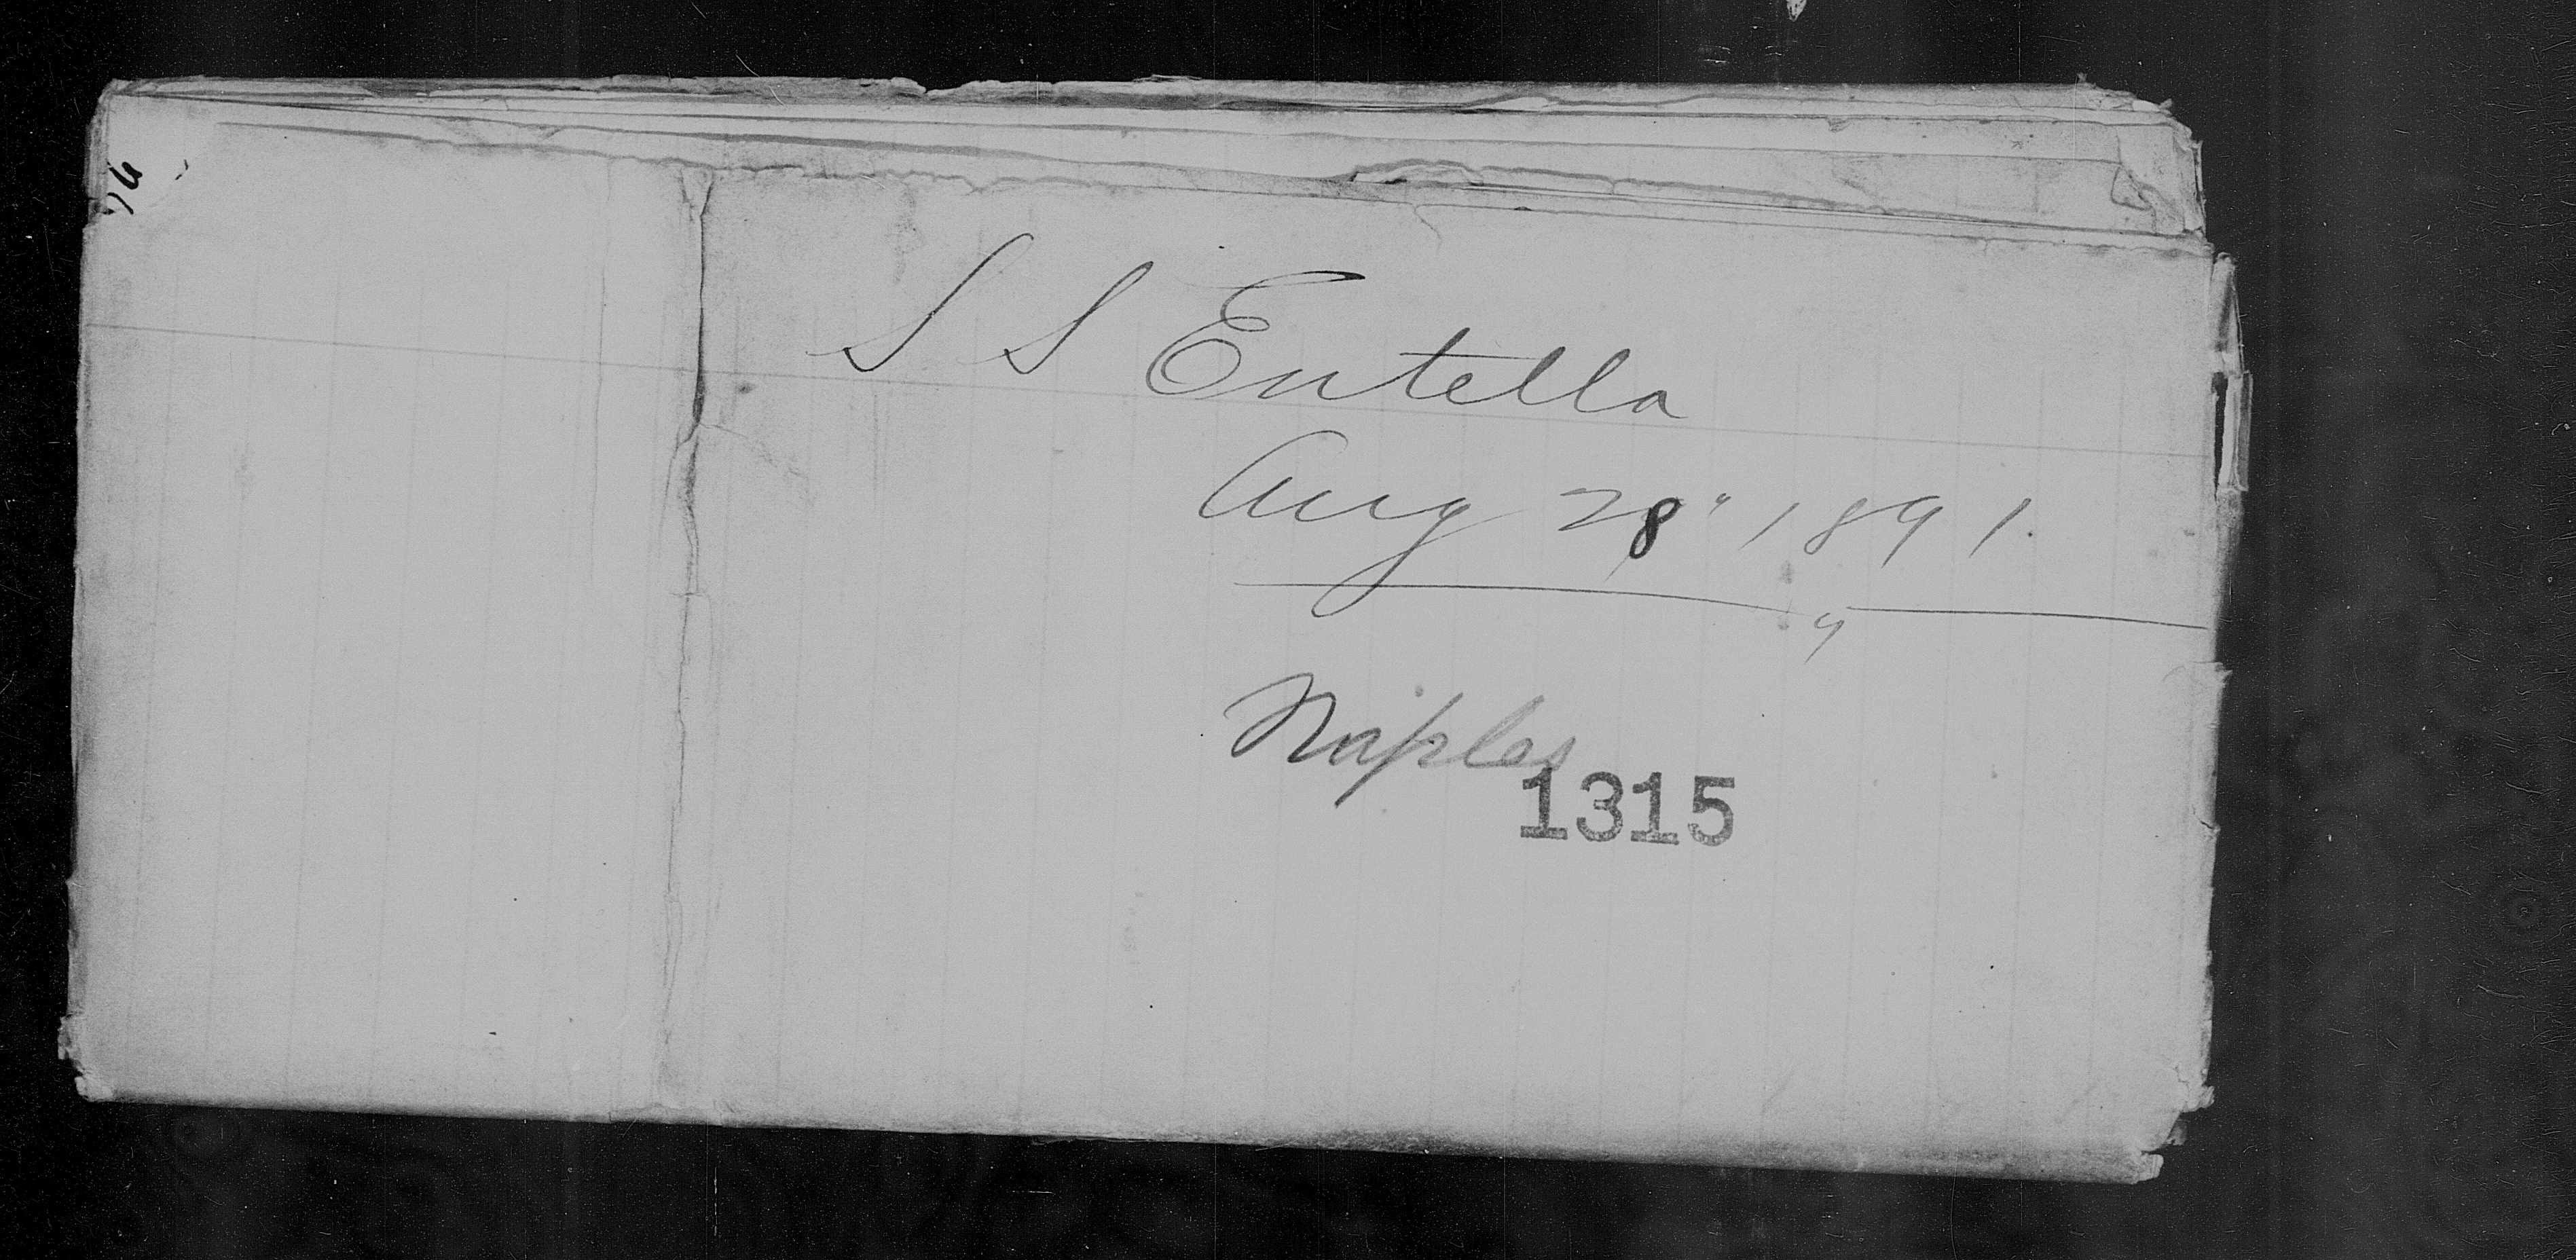 S S Entella
Aug 28" 1891.
"
Naples
1315